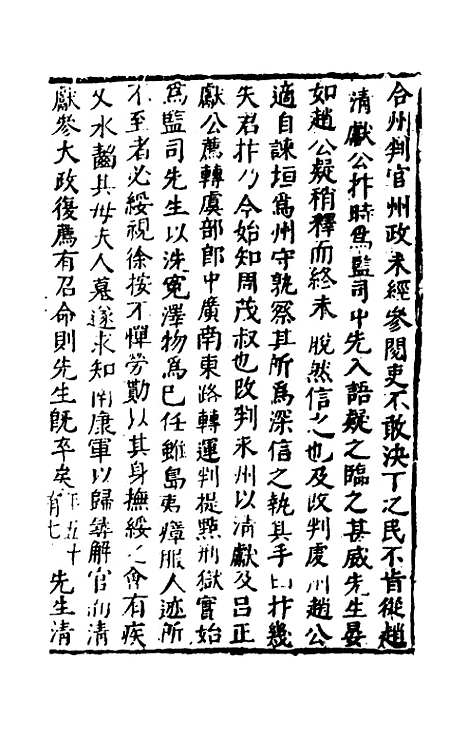 合州判官州政未經參閱吏不敢決下之民不肯從趙
清獻公抃時爲監司中先入語疑之臨之甚威先生晏
如趙公疑稍釋而終未脫然信之也及改判虔州趙公
適自諫垣爲州守孰察其所爲深信之執其手曰抃幾
失君抃乃今始知周茂叔也改判來州以清獻及吕正
獻公薦轉虞部郎中廣南東路轉運判提㸃刑獄實始
爲監司先生以洗冤澤物爲已任雖島夷瘴服人迹所
不至者必緩視徐按不憚勞勤以其身撫綏之會有疾
又水齧其母夫人墓遂求知南康軍以歸葬解官而清
獻參大政復薦有召命則先生既卒矣年五十有七先生清